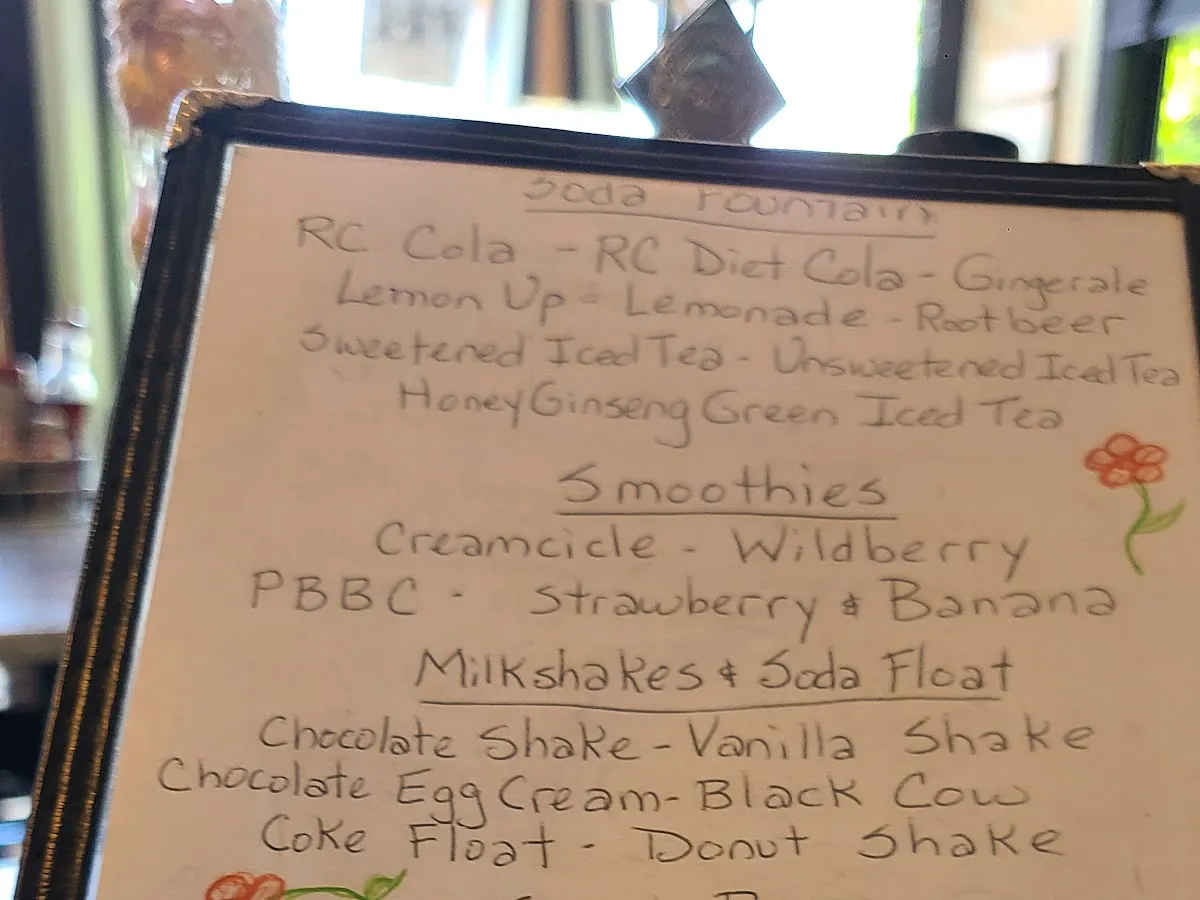 Soda Fountain
RC Cola - RC Diet Cola - Gingerale
Lemon Up - Lemonade - Rootbeer
Sweetened Iced Tea - Unsweetened Iced Tea
Honey Ginseng Green Iced Tea
Smoothies
Creamcicle - Wildberry
PBBC - Strawberry & Banana
Milkshakes & Soda Float
Chocolate Shake - Vanilla Shake
Chocolate Egg Cream - Black Cow
Coke Float - Donut Shake